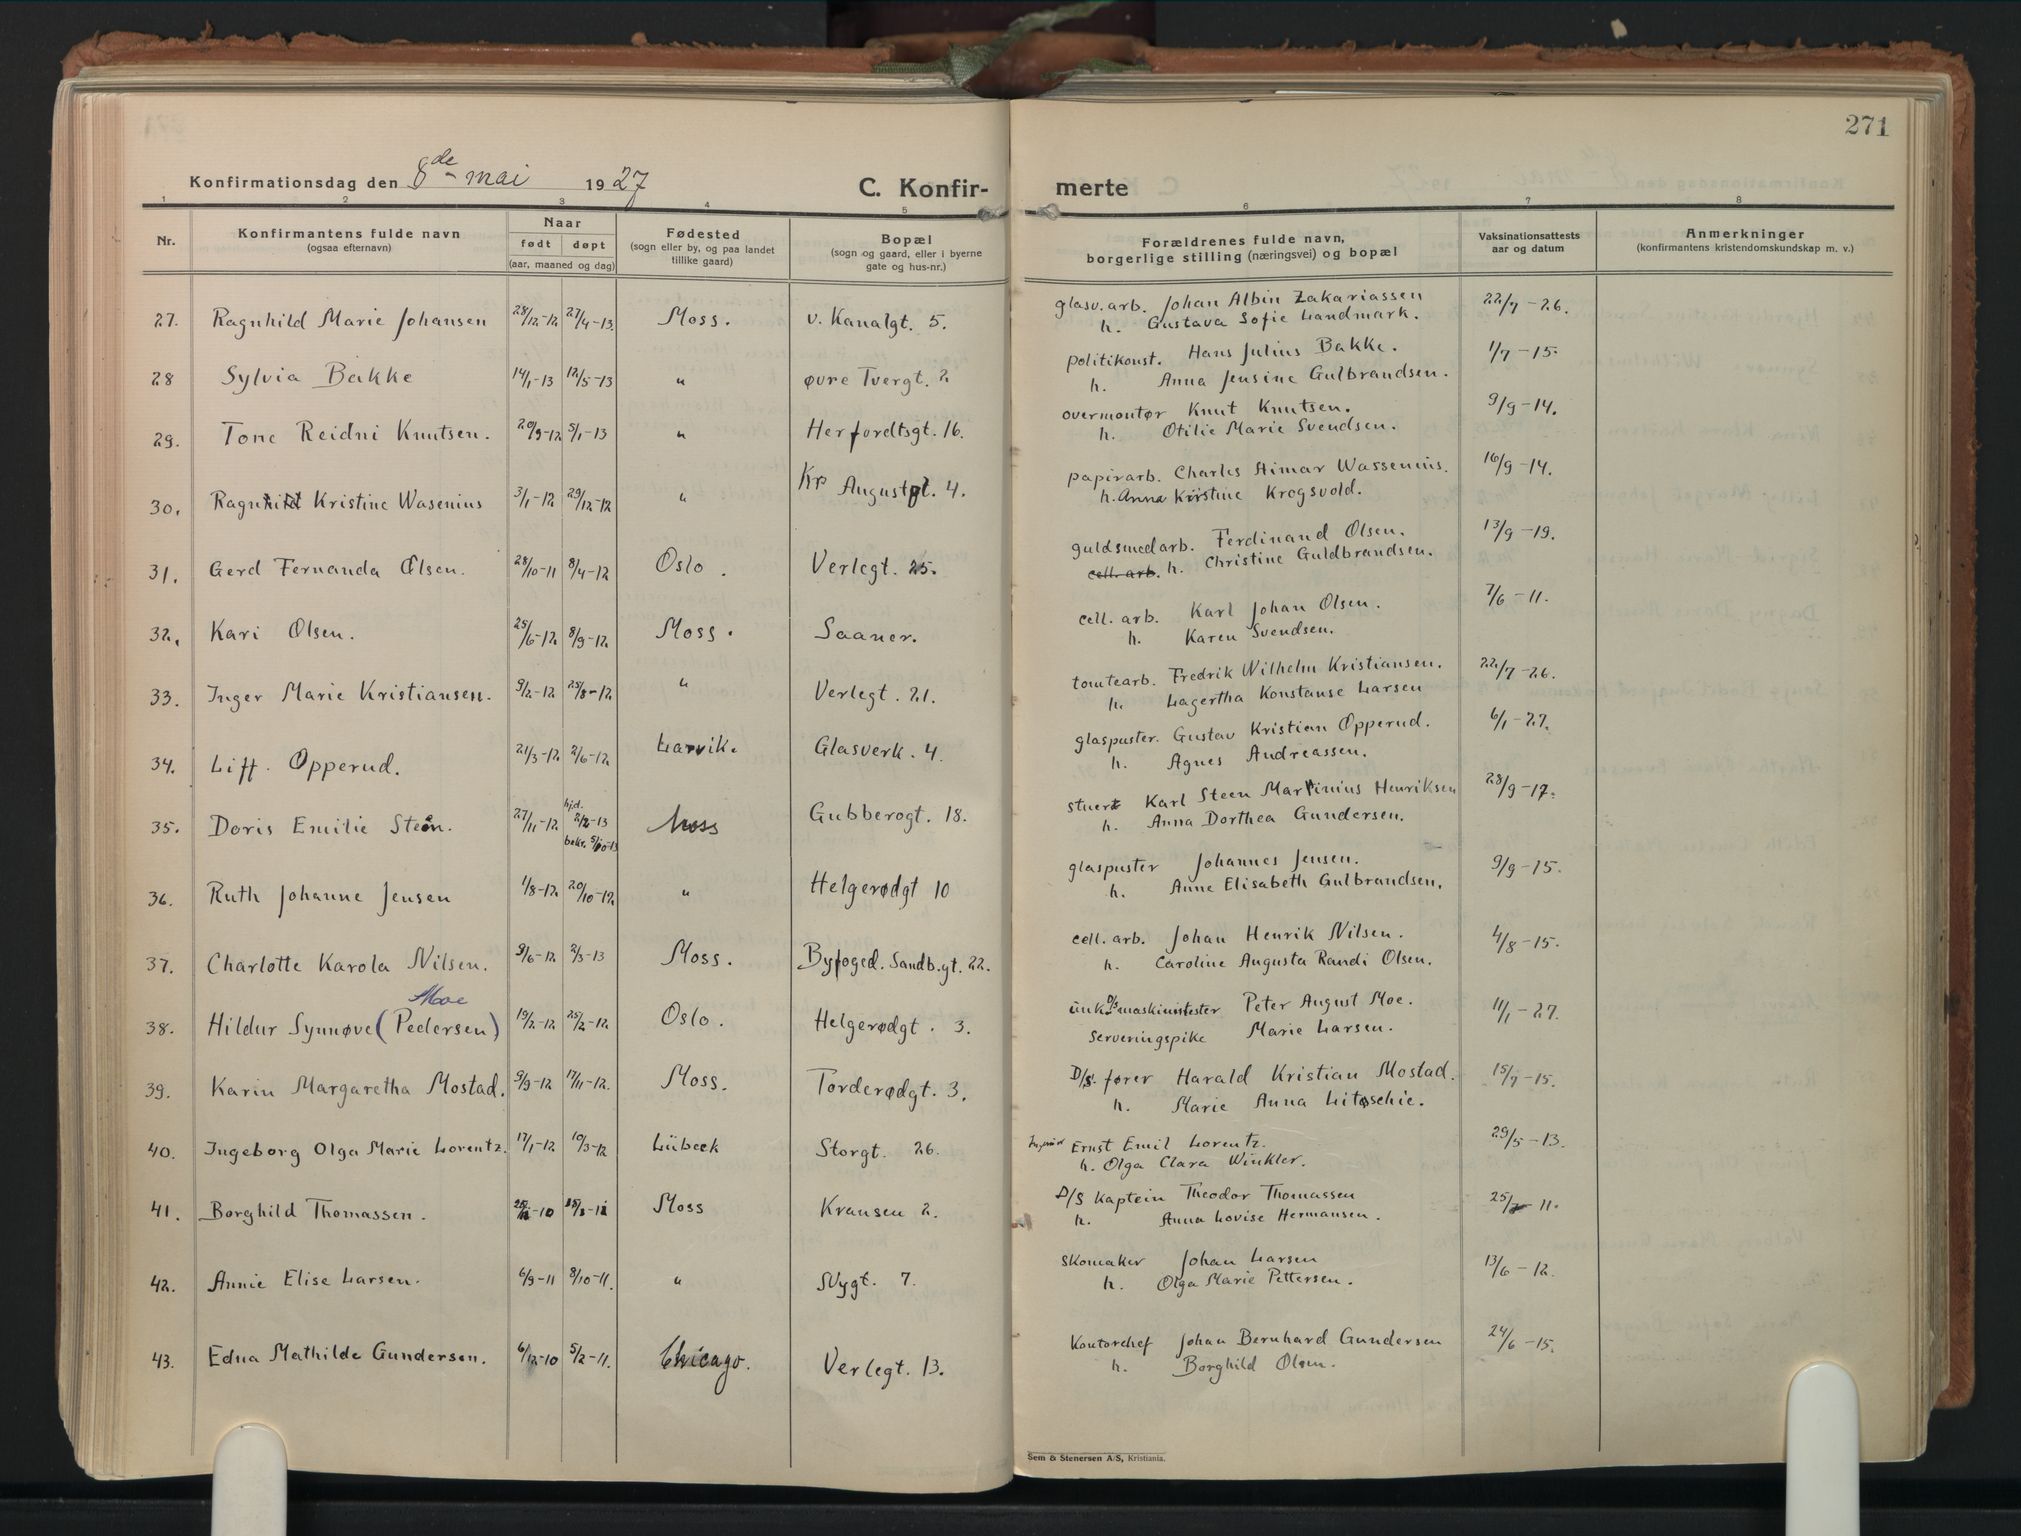 271
Konfirmationsdag den 8de mai 1927
C. Konfir- merte
1 2 3 4 5 6 7 8
Nr.
Konfirmantens fulde navn
(ogsaa efternavn)
Naar
født døpt
(aar, maaned og dag)
Fødested
(sogn eller by, og paa landet
tillike gaard)
Bopæl
(sogn og gaard, eller i byerne
gate og hus-nr.)
Forældrenes fulde navn,
borgerlige stilling (næringsvei) og bopæl
Vaksinationsattests
aar og datum
Anmerkninger
(konfirmantens kristendomskundskap m. v.)
27. Ragnhild Marie Johansen 28/12-12 27/4-13. Moss. v. Kanalgt. 5. glasv. arb. Johan Albin Zakariassen 22/7-26.
h. Gustava Sofie Landmark.
28 Sylvia Bakke 14/1-13 12/5-13 " øvre Tvergt. 2 politikonst. Hans Julius Bakke. 1/7-15.
h. Anna Jensine Gulbrandsen.
29. Tone Reidni Knutsen. 20/9-12 5/1-13 " Herfordtsgt. 16. overmontør Knut Knutsen. 9/9-14.
h. Otilie Marie Svendsen.
30. Ragnhild Kristine Wasenius 3/1-12 29/12-12 " Kr. Augustgt. 4. papirarb. Charles Aimar Wassenius. 16/9-14.
h. Anna Kristine Krogsvold.
31. Gerd Fernanda Olsen. 28/10-11 8/4-12 Oslo. Verlegt. 25. guldsmedarb. Ferdinand Olsen. 13/9-19.
cell. arb. h. Christine Guldbrandsen.
32. Kari Olsen. 25/6-12. 8/9-12. Moss. Saaner. cell. arb. Karl Johan Olsen. 7/6-11.
h. Karen Svendsen.
33. Inger Marie Kristiansen. 9/2-12. 25/8-12 " Verlegt. 21. tomtearb. Fredrik Wilhelm Kristiansen. 22/7-26.
h. Lagertha Konstanse Larsen
34. Liff. Opperud. 21/3-12. 2/6-12. Larvik. Glasverk. 4. glaspuster. Gustav Kristian Opperud. 6/1-27.
h. Agnes Andreassen.
35. Doris Emilie Steen. 27/11-12 hjd. 2/2-13 bekr. 5/10-13 Moss Gubberogt. 18. stuert Karl Steen Martinius Henriksen 28/9-17.
h. Anna Dorthea Gundersen.
36. Ruth Johanne Jensen 1/8-12. 20/10-12. " Helgerødgt 10 glaspuster Johannes Jensen. 9/9-15.
h. Anne Elisabeth Gulbrandsen.
37. Charlotte Karola Nilsen. 9/6-12 2/3-13 Moss. Byfoged. Sandb.gt. 22. cell. arb. Johan Henrik Nilsen. 4/8-15.
h. Caroline Augusta Randi Olsen.
Moe
38. Hildur Synnøve (Pedersen) 19/2-12 25/2-12. Oslo. Helgerødgt. 3. unk. D/s maskinistester Peter August Moe. 11/1-27.
Serveringspike Marie Larsen.
39. Karin Margaretha Mostad. 9/9-12 17/11-12. Moss. Torderødgt. 3. D/S. fører Harald Kristian Mostad. 15/7-15.
h. Marie Anna Litoschie.
40. Ingeborg Olga Marie Lorentz. 17/1-12 10/3-12 Lübeck Storgt. 26. Ingeniør Ernst Emil Lorentz. 29/5-13.
h. Olga Clara Winkler.
41. Borghild Thomassen. -10 Moss Kransen 2. D/S Kaptein Theodor Thomassen 25/7-11.
h. Anna Lovise Hermansen.
42. Annie Elise Larsen. 6/9-11 8/10-11. " Nygt. 7. Skomaker Johan Larsen 13/6-12.
h. Olga Marie Pettersen.
43. Edna Mathilde Gundersen. 6/12-10 5/2-11. Chicago. Verlegt. 13. Kontorchef Johan Bernhard Gundersen 24/6-15.
h. Borghild Olsen.
Sem & Stenersen A/S, Kristiania.